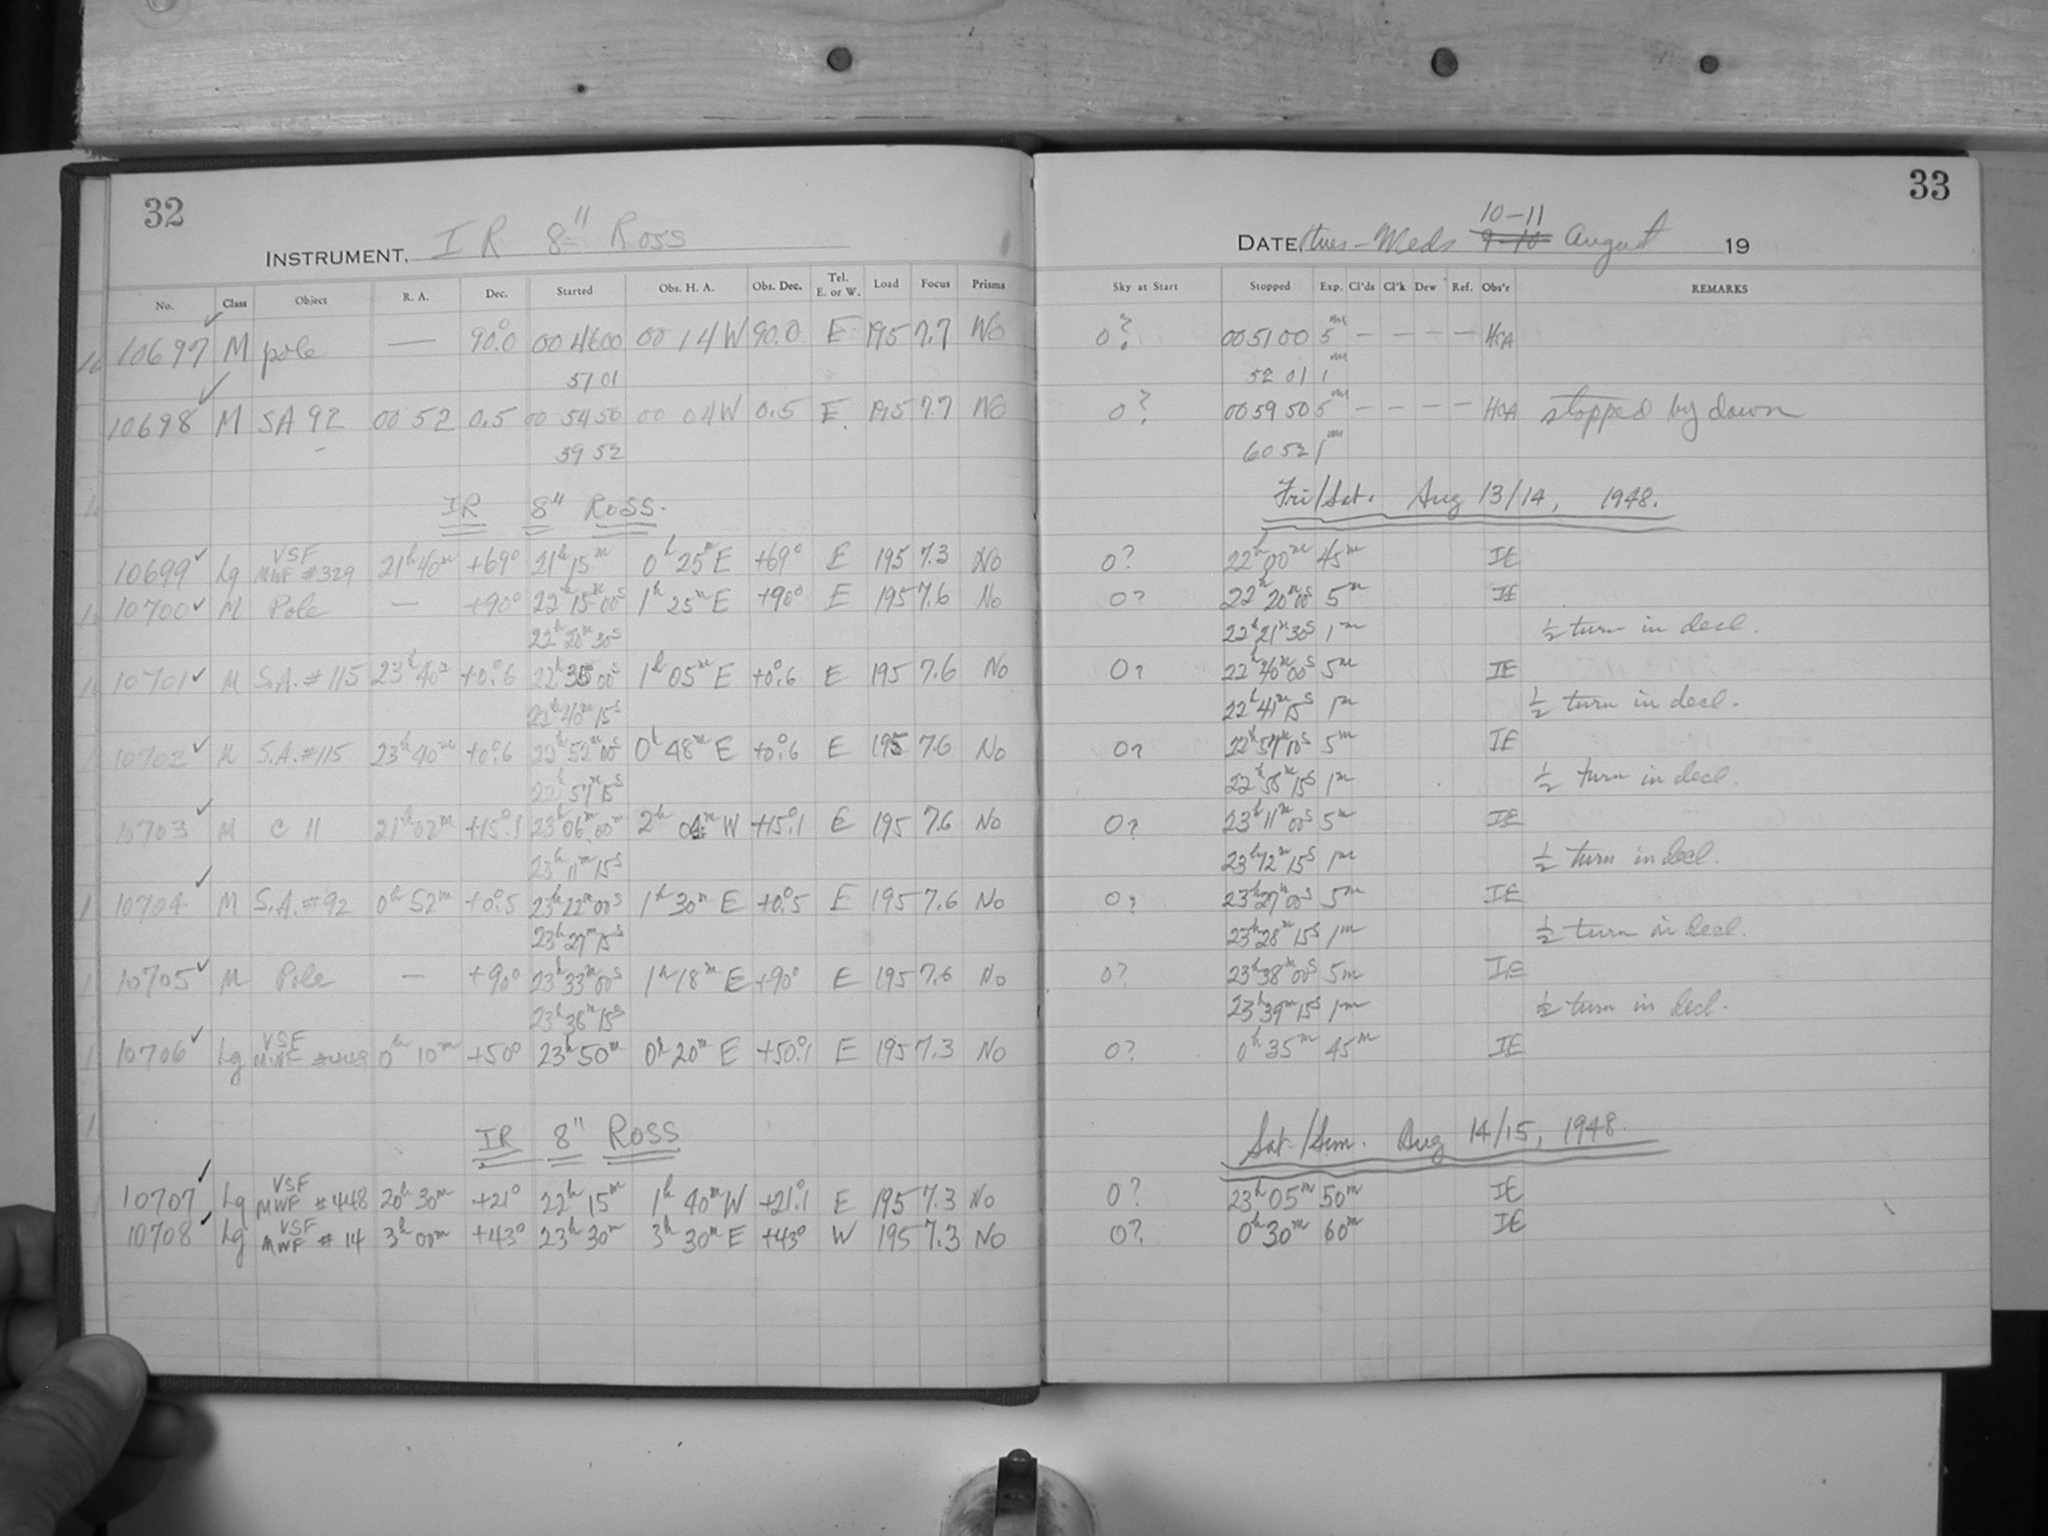 32
INSTRUMENT, IR 8" Ross
No. Class Object R. A. Dec. Started Obs. H. A. Obs. Dec. Tel. E. or W. Load Focus Prisms
10697 M pole — 90.0 00 46 00 00 14 W 90.0 E 195 7.7 No
51 01
10698 M SA 92 00 52 0.5 00 54 50 00 04 W 0.5 E. 195 7.7 No
59 52
IR 8" Ross.
10699 Lg VSF MWF #329 21h 40m +69° 21h 15m 0h 25m E +69° E 195 7.3 No
10700 M Pole — +90° 22h 15m 00s 1h 25m E +90° E 195 7.6 No
22h 20m 30s
10701 M S.A. #115 23h 40m +0°.6 22h 35 00s 1h 05m E +0°.6 E 195 7.6 No
22h 40m 15s
10702 M S.A. #115 23h 40m +0°.6 22h 52m 00s 0h 48m E +0°.6 E 195 7.6 No
22h 57m 15s
10703 M C 11 21h 02m +15°.1 23h 06m 00m 2h 04m W +15°.1 E 195 7.6 No
23h 11m 15s
10704 M S.A. #92 0h 52m +0°.5 23h 22m 00s 1h 30m E +0°.5 E 195 7.6 No
23h 27m 15s
10705 M Pole — +90° 23h 33m 00s 1h 18m E +90° E 195 7.6 No
23h 38m 15s
10706 Lg VSF MWF 0h 10m +50° 23h 50m 0h 20m E +50°.1 E 195 7.3 No
IR 8" Ross
10707 Lg VSF MWF #448 20h 30m +21° 22h 15m 1h 40m W +21°.1 E 195 7.3 No
10708 Lg VSF MWF #14 3h 00m +43° 23h 30m 3h 30m E +43° W 195 7.3 No
33
10-11
DATE, Tues - Weds 9-10 August 19
Sky at Start Stopped Exp. Cl'ds Cl'k Dew Ref. Obs'r REMARKS
0? 00 51 00 5m — — — — HGA
52 01 1m
0? 00 59 50 5m — — — — HGA stopped by dawn
60 52 1m
Fri/Sat. Aug 13/14, 1948.
0? 22h 00m 45m IE
0? 22h 20m 00s 5m IE
22h 21m 30s 1m ½ turn in decl.
0? 22h 40m 00s 5m IE
22h 41m 15s 1m ½ turn in decl.
0? 22h 57m 10s 5m IE
22h 58m 15s 1m ½ turn in decl.
0? 23h 11m 00s 5m IE
23h 12m 15s 1m ½ turn in decl.
0? 23h 27m 00s 5m IE
23h 28m 15s 1m ½ turn in decl.
0? 23h 38m 00s 5m IE
23h 39m 15s 1m ½ turn in decl.
0? 0h 35m 45m IE
Sat./Sun. Aug 14/15, 1948.
0? 23h 05m 50m IE
0? 0h 30m 60m IE